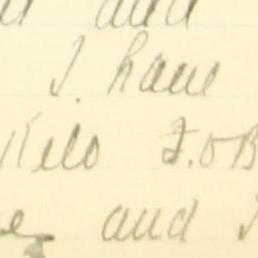 and
I. have
Kilo F.OB
and I